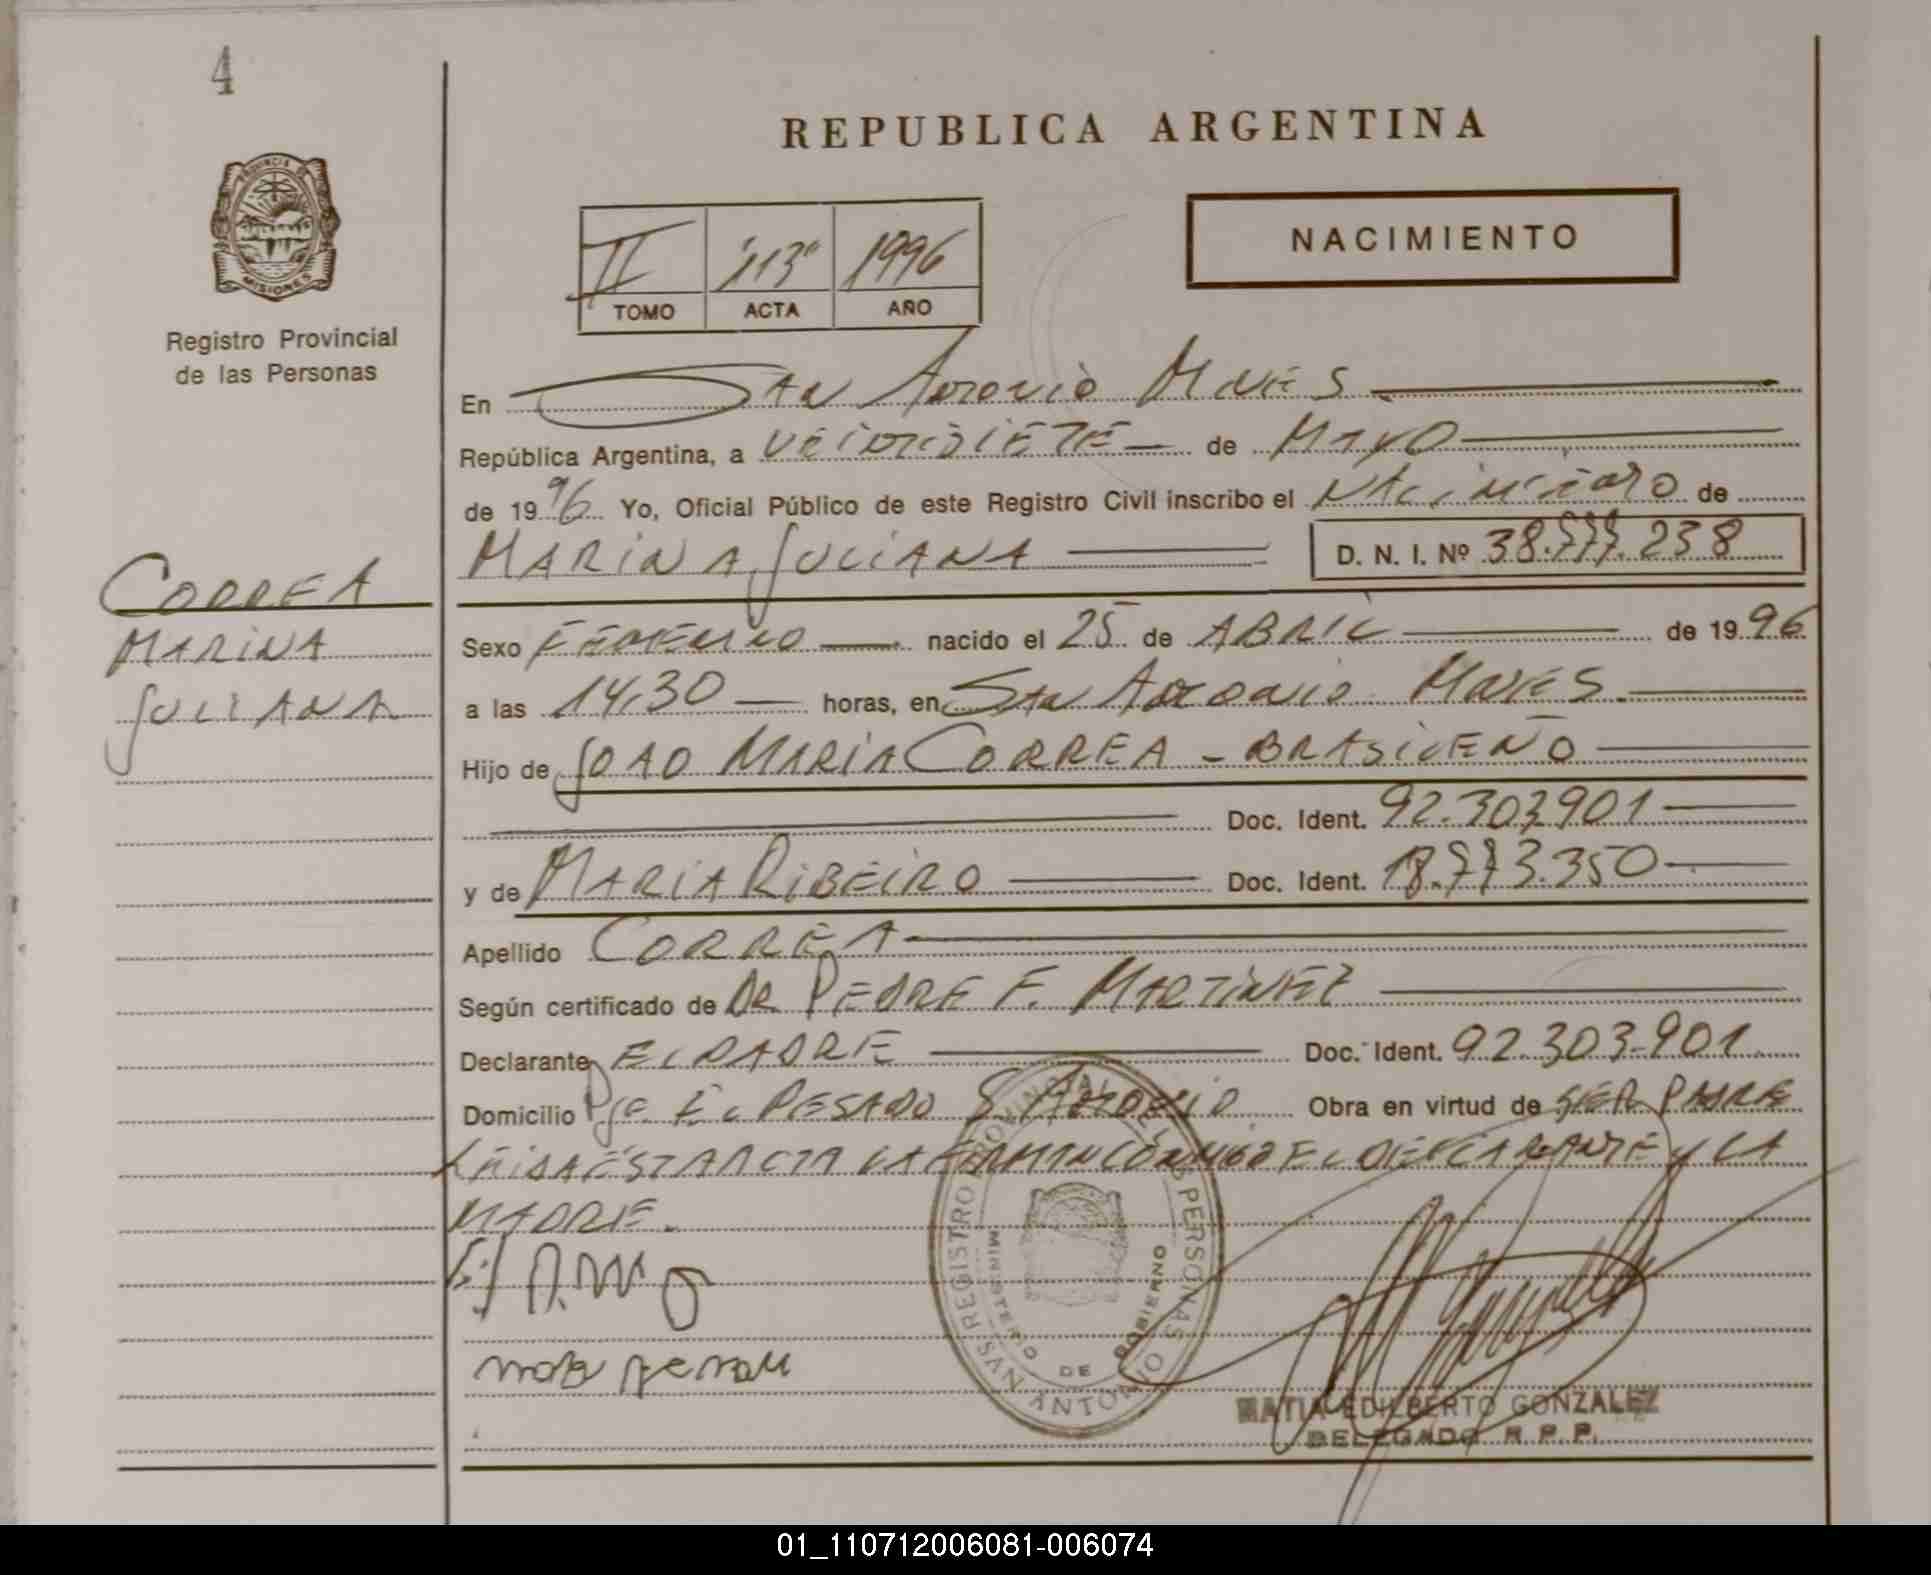 4
PROVINCIA DE
MISIONES
Registro Provincial
de las Personas
CORREA
MARINA
JULIANA
REPUBLICA ARGENTINA
NACIMIENTO
II "113" 1996
TOMO ACTA AÑO
En SAN ANTONIO MNES
República Argentina, a VEINTISIETE de MAYO
de 1996 Yo, Oficial Público de este Registro Civil inscribo el NACIMIENTO de
MARINA JULIANA D. N. I. Nº 38.777.238
Sexo FEMENINO nacido el 25 de ABRIL de 1996
a las 14,30 horas, en SAN ANTONIO MNES
Hijo de JOAO MARIA CORREA - BRASILEÑO
Doc. Ident. 92.303.901
y de MARIA RIBEIRO Doc. Ident. 18.773.350
Apellido CORREA
Según certificado de DR PEDRE F. MARTINEZ
Declarante EL PADRE Doc. Ident. 92.303.901
Domicilio Pje EL PESADO S. ANTONIO Obra en virtud de SER PADRE
LEIDA ESTA ACTA LA FIRMAN CONMIGO EL DECLARANTE Y LA
MADRE.
REGISTRO PROVINCIAL DE LAS PERSONAS
MINISTERIO DE GOBIERNO
SAN ANTONIO
MATIA EDILBERTO GONZALEZ
DELEGADO R.P.P.
01_110712006081-006074